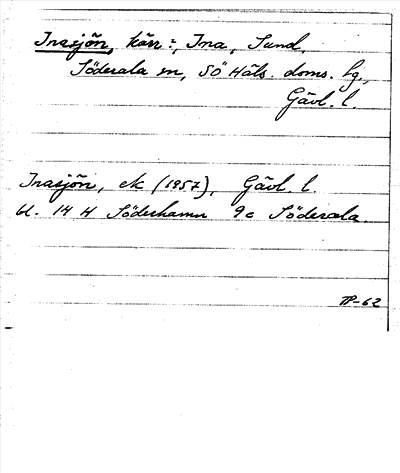 Inasjön, kärr:, Ina, Sund,
Söderala sn, SÖ Häls. doms. fg.,
Gävl. l.
Inasjön, ek (1957), Gävl. l.
bl. 14 H Söderhamn 9c Söderala.
TP-62